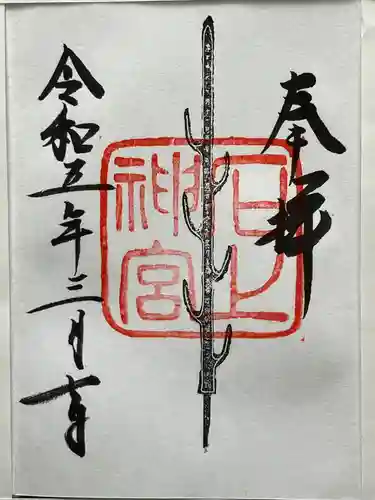 奉拝
石上
神宮
令和五年三月吉日